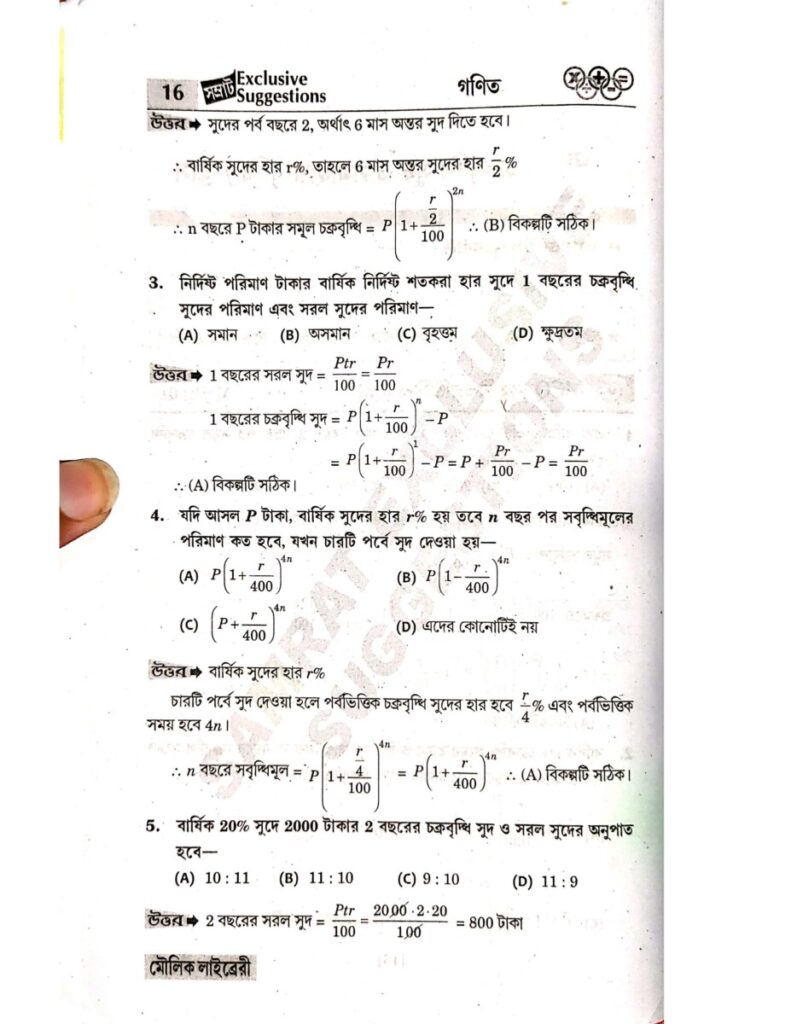 16 সম্রাট Exclusive Suggestions গণিত
উত্তর ➡ সুদের পর্ব বছরে 2, অর্থাৎ 6 মাস অন্তর সুদ দিতে হবে।
∴ বার্ষিক সুদের হার r%, তাহলে 6 মাস অন্তর সুদের হার r/2 %
∴ n বছরে P টাকার সমূল চক্রবৃদ্ধি = P(1+(r/2)/100)^2n ∴ (B) বিকল্পটি সঠিক।
3. নির্দিষ্ট পরিমাণ টাকার বার্ষিক নির্দিষ্ট শতকরা হার সুদে 1 বছরের চক্রবৃদ্ধি
সুদের পরিমাণ এবং সরল সুদের পরিমাণ—
(A) সমান (B) অসমান (C) বৃহত্তম (D) ক্ষুদ্রতম
উত্তর ➡ 1 বছরের সরল সুদ = Ptr/100 = Pr/100
1 বছরের চক্রবৃদ্ধি সুদ = P(1+r/100)^n – P
= P(1+r/100)^1 – P = P + Pr/100 – P = Pr/100
∴ (A) বিকল্পটি সঠিক।
4. যদি আসল P টাকা, বার্ষিক সুদের হার r% হয় তবে n বছর পর সবৃদ্ধিমূলের
পরিমাণ কত হবে, যখন চারটি পর্বে সুদ দেওয়া হয়—
(A) P(1+r/400)^4n (B) P(1–r/400)^4n
(C) (P+r/400)^4n (D) এদের কোনোটিই নয়
উত্তর ➡ বার্ষিক সুদের হার r%
চারটি পর্বে সুদ দেওয়া হলে পর্বভিত্তিক চক্রবৃদ্ধি সুদের হার হবে r/4 % এবং পর্বভিত্তিক
সময় হবে 4n।
∴ n বছরে সবৃদ্ধিমূল = P(1+(r/4)/100)^4n = P(1+r/400)^4n ∴ (A) বিকল্পটি সঠিক।
5. বার্ষিক 20% সুদে 2000 টাকার 2 বছরের চক্রবৃদ্ধি সুদ ও সরল সুদের অনুপাত
হবে—
(A) 10 : 11 (B) 11 : 10 (C) 9 : 10 (D) 11 : 9
উত্তর ➡ 2 বছরের সরল সুদ = Ptr/100 = 2000·2·20/100 = 800 টাকা
মৌলিক লাইব্রেরী
SAMRAT EXCLUSIVE
SUGGESTIONS